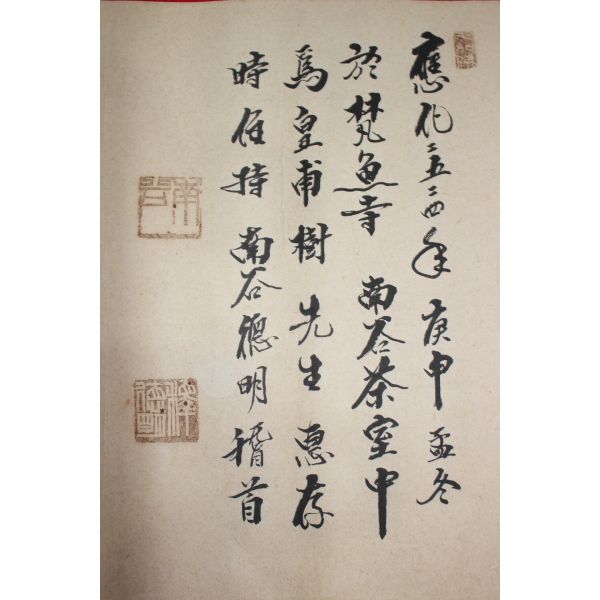 應化二五二四年 庚申 孟冬
於梵魚寺 南谷茶室中
爲皇甫樹 先生 惠存
時住持 南谷德明 稽首
南谷
德明